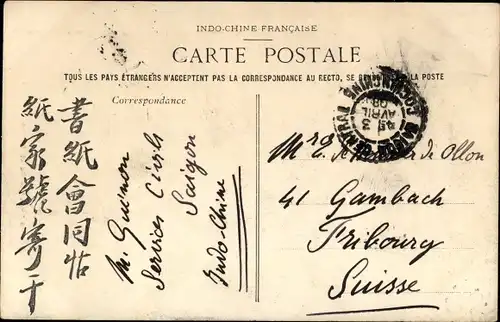 INDO-CHINE FRANÇAISE
CARTE POSTALE
TOUS LES PAYS ÉTRANGERS N'ACCEPTENT PAS LA CORRESPONDANCE AU RECTO, SE LA POSTE
Correspondance
書紙會同帖
紙家號寄二十
M. Guémon
Services Civils
Saigon
Indo-Chine
SAIGON CENTRAL COCHINCHINE
3
AVRIL
08
de Ollon
41 Gambach
Fribourg
Suisse